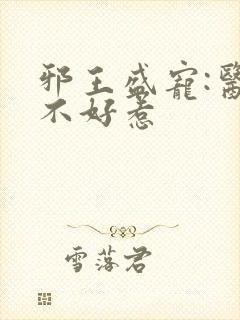 邪王盛寵:醫
不好惹
雪落君